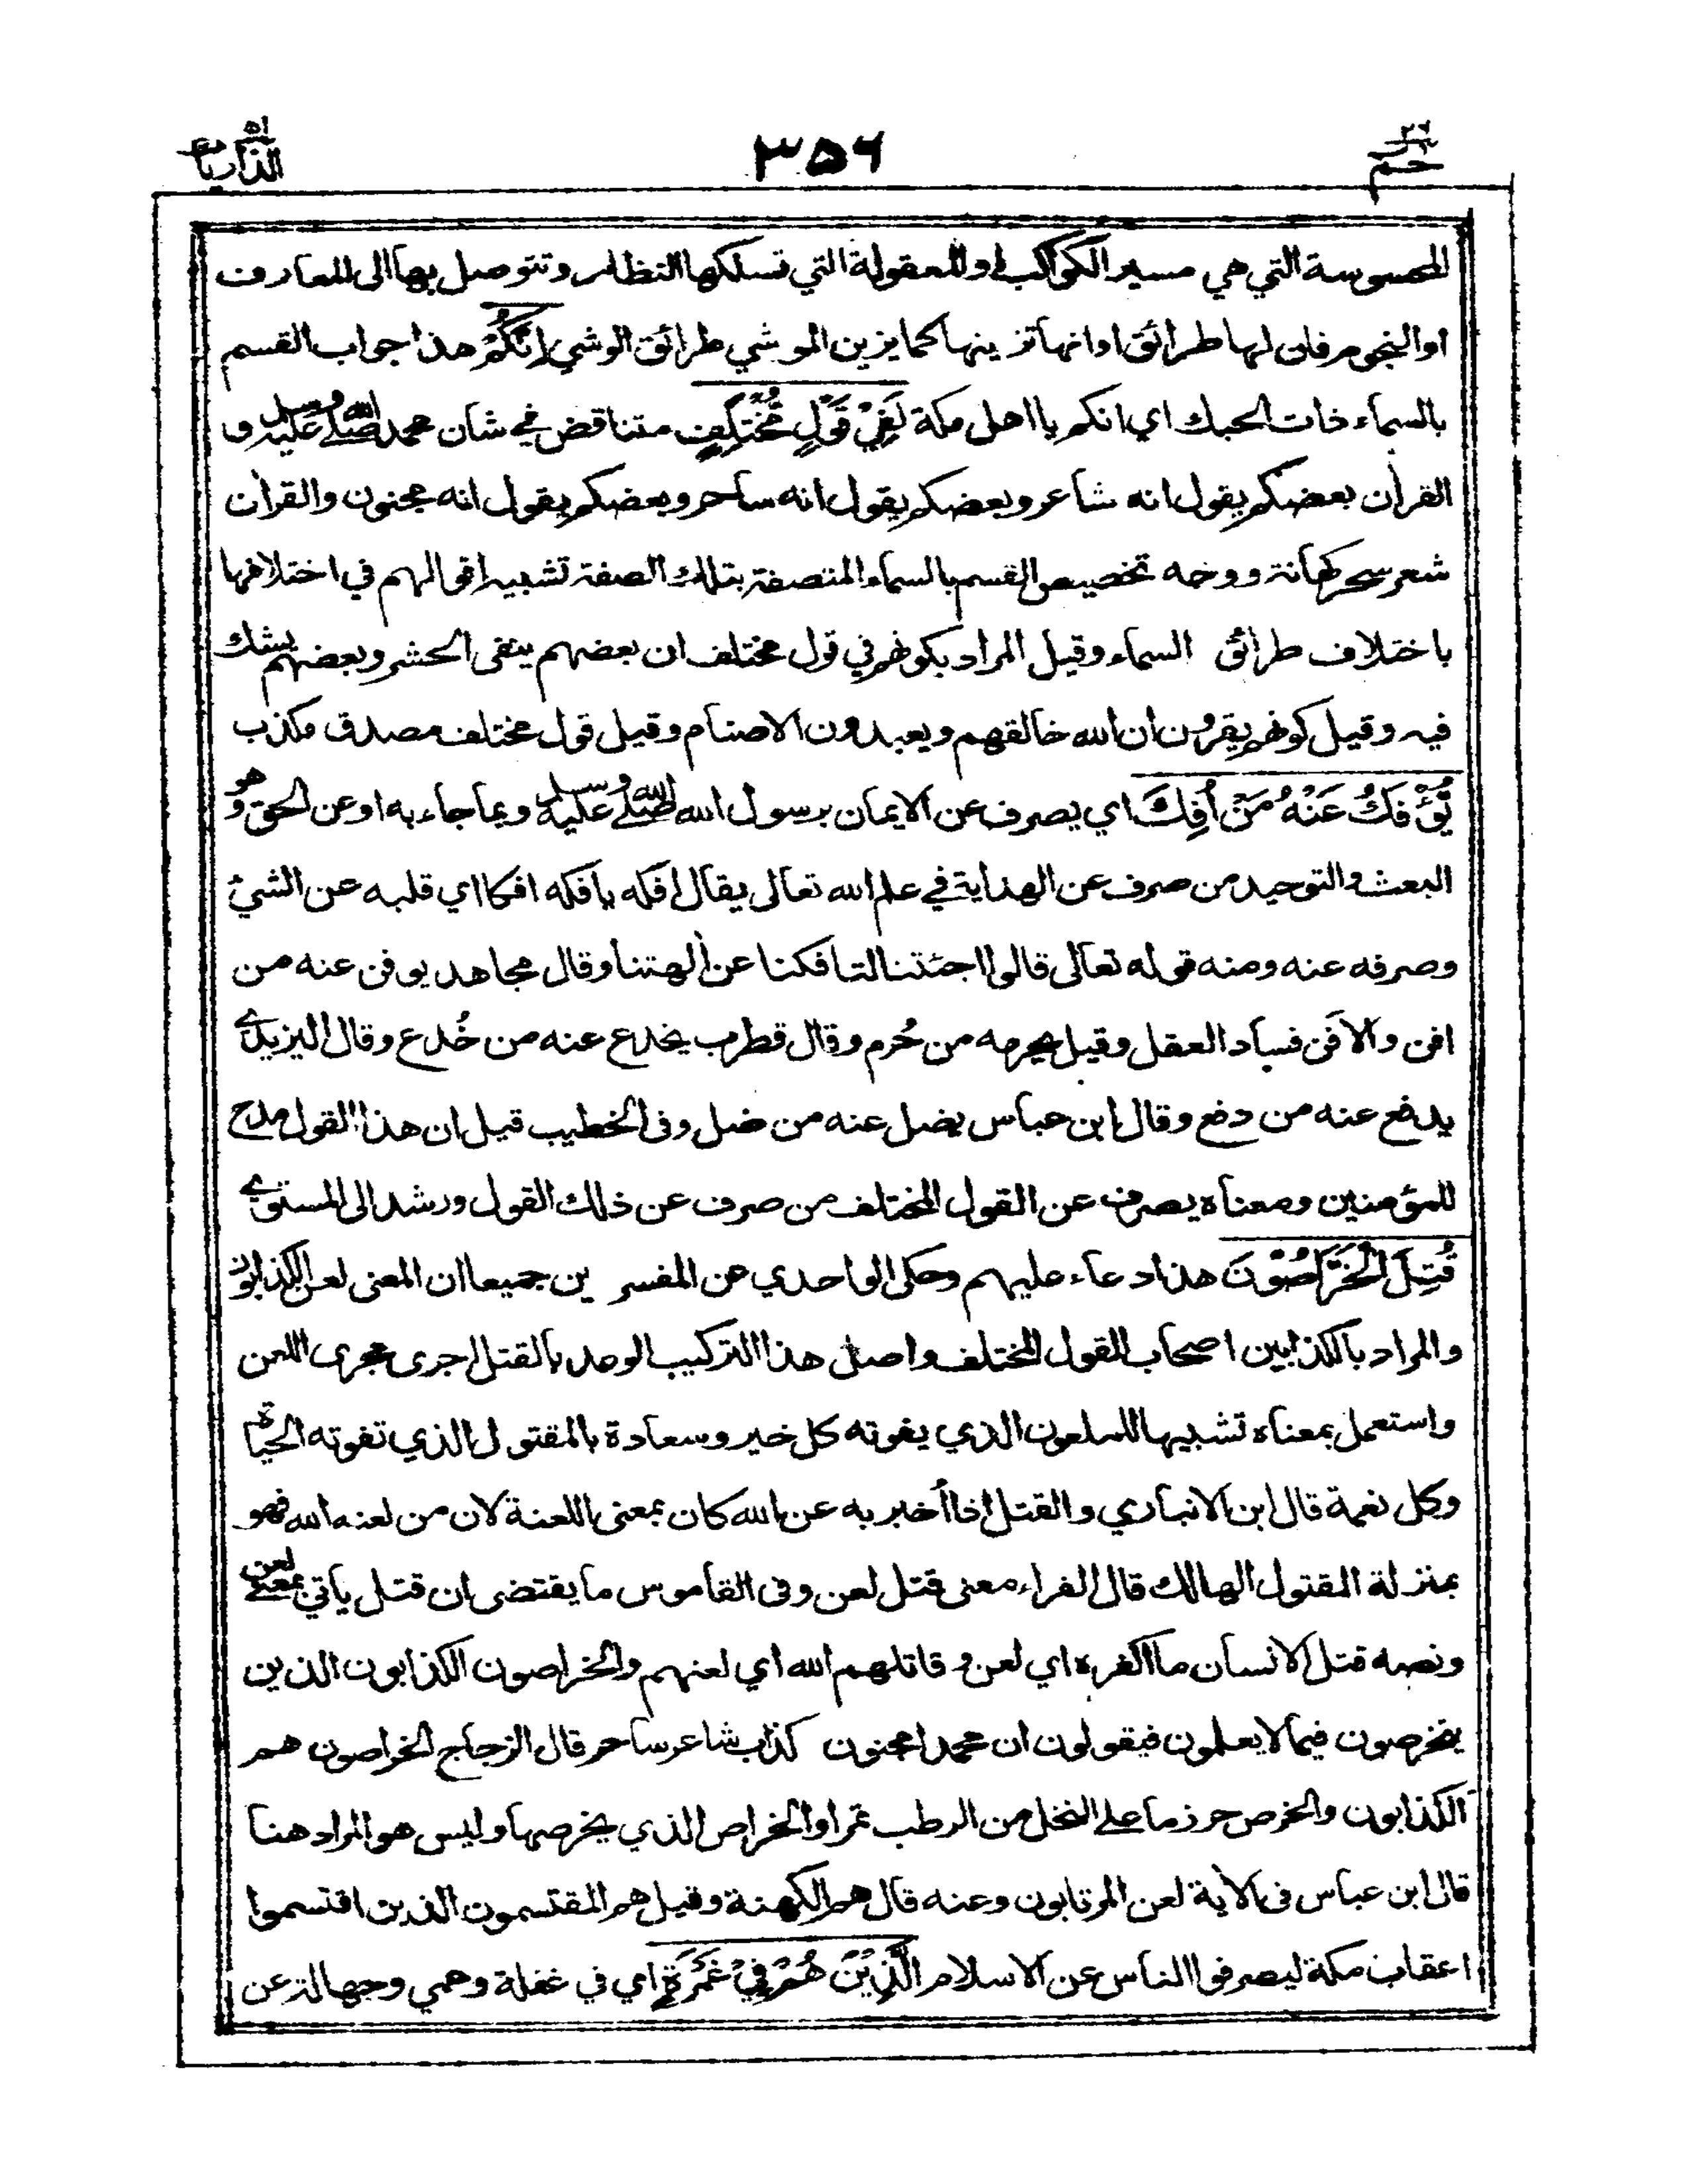 حم ٢٦
٣٥٦
الذاريات ٥١
المحسوسة التي هي مسير الكواكب او المعقولة التي تسلكها النظار وتتوصل بها الى المعارف
او النجوم فان لها طرائق او انها تزينها كما يزين الموشي طرائق الوشي إِنَّكُمْ هذا جواب القسم
بالسماء ذات الحبك اي انكم يا اهل مكة لَفِيْ قَوْلٍ مُّخْتَلِفٍ متناقض في شان محمد صلى الله عليه وسلم و
القراٰن بعضكم يقول انه شاعر وبعضكم يقول انه ساحر وبعضكم يقول انه مجنون والقراٰن
شعر سحر كهانة ووجه تخصيص القسم بالسماء المتصفة بتلك الصفة تشبيه اقوالهم في اختلافها
باختلاف طرائق السماء وقيل المراد بكونهم في قول مختلف ان بعضهم ينفى الحشر وبعضهم يشك
فيه وقيل كونهم يقرون ان الله خالقهم ويعبدون الاصنام وقيل قول مختلف مصدق مكذب
يُّؤْفَكُ عَنْهُ مَنْ أُفِكَ اي يصرف عن الايمان برسول الله صلى الله عليه وسلم وبما جاء به او عن الحق وهو
البعث والتوحيد من صرف عن الهداية في علم الله تعالى يقال افكه يافكه افكا اي قلبه عن الشيئ
وصرفه عنه ومنه قوله تعالى قالوا اجئتنا لتافكنا عن اٰلهتنا وقال مجاهد يوفن عنه من
افن والافن فساد العقل وقيل يحرمه من حُرم وقال قطرب يخدع عنه من خُدع وقال اليزيدي
يدفع عنه من دفع وقال ابن عباس يضل عنه من ضل وفى الخطيب قيل ان هذا القول مدح
للمؤمنين ومعناه يصرف عن القول المختلف من صرف عن ذلك القول ورشد الى المستوي
قُتِلَ الْخَرَّاصُوْنَ هذا دعاء عليهم وحكى الواحدي عن المفسرين جميعا ان المعنى لعن الكذابون
والمراد بالكذابين اصحاب القول المختلف واصل هذا التركيب الوعد بالقتل اجرى مجرى اللعن
واستعمل بمعناه تشبيها للملعون الذي يفوته كل خير وسعادة بالمقتول الذي تفوته الحياة
وكل نعمة قال ابن الانباري والقتل اذا أخبر به عن الله كان بمعنى اللعنة لان من لعنه الله فهو
بمنزلة المقتول الهالك قال الفراء معنى قتل لعن وفى القاموس ما يقتضى ان قتل يأتي بمعنى لعن
ونصه قتل الانسان ما اكفره اي لعن و قاتلهم الله اي لعنهم والخراصون الكذابون الذين
يتخرصون فيما لا يعلمون فيقولون ان محمدا مجنون كذاب شاعر ساحر قال الزجاج الخراصون هم
الكذابون والخرص حرز ما على النخل من الرطب تمرا والخراص الذي يخرصها وليس هو المراد هنا
قال ابن عباس فى الأية لعن المرتابون وعنه قال هم الكهنة وقيل هم المقتسمون الذين اقتسموا
اعقاب مكة ليصرفوا الناس عن الاسلام الَّذِيْنَ هُمْ فِيْ غَمْرَةٍ اي في غفلة وعمي وجهالة عن